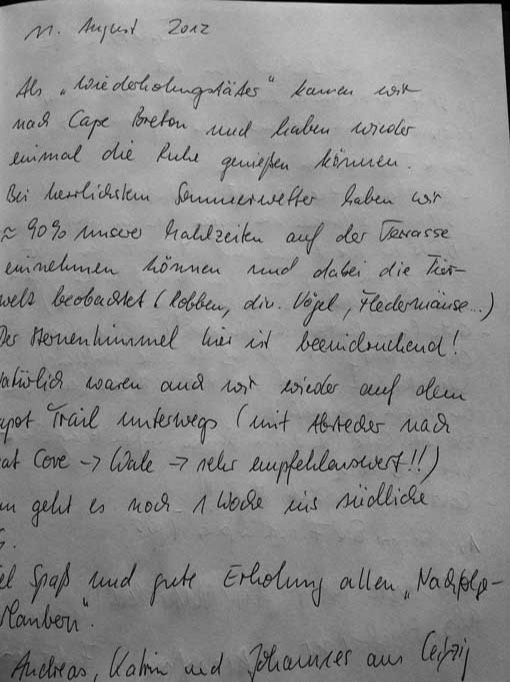 11. August 2012
Als „Wiederholungstäter“ kamen wir
nach Cape Breton und haben wieder
einmal die Ruhe genießen können.
Bei herrlichstem Sommerwetter haben wir
≈ 90% unserer Mahlzeiten auf der Terrasse
einnehmen können und dabei die Tier-
welt beobachtet (Robben, div. Vögel, Fledermäuse...)
Der Sternenhimmel hier ist beeindruckend!
Natürlich waren auch wir wieder auf dem
apot Trail unterwegs (mit Abstecher nach
at Cove -> Wale -> sehr empfehlenswert!!)
geht es noch 1 Woche ins südliche
Spaß und gute Erholung allen „Nachfolge-
Urlaubern“.
Andreas, Katrin und Johannes aus Leipzig